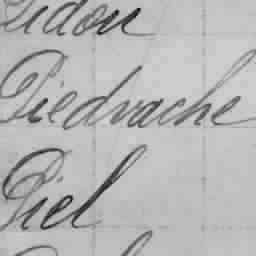 Pidou
Piedvache
Piel